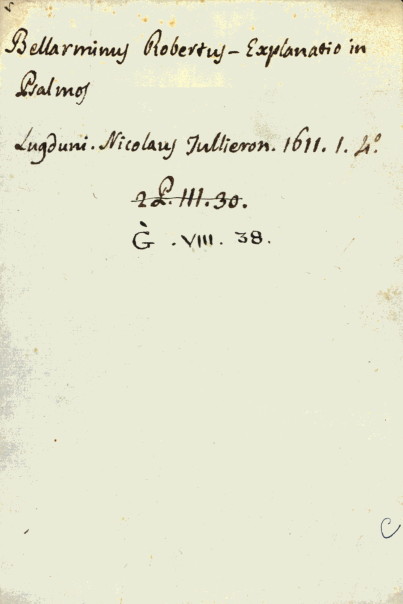 Bellarminus Robertus – Explanatio in
Psalmos
Lugduni. Nicolaus Jullieron. 1611. 1. 4.º
2 P. III. 30.
Ġ . VIII. 38.
C